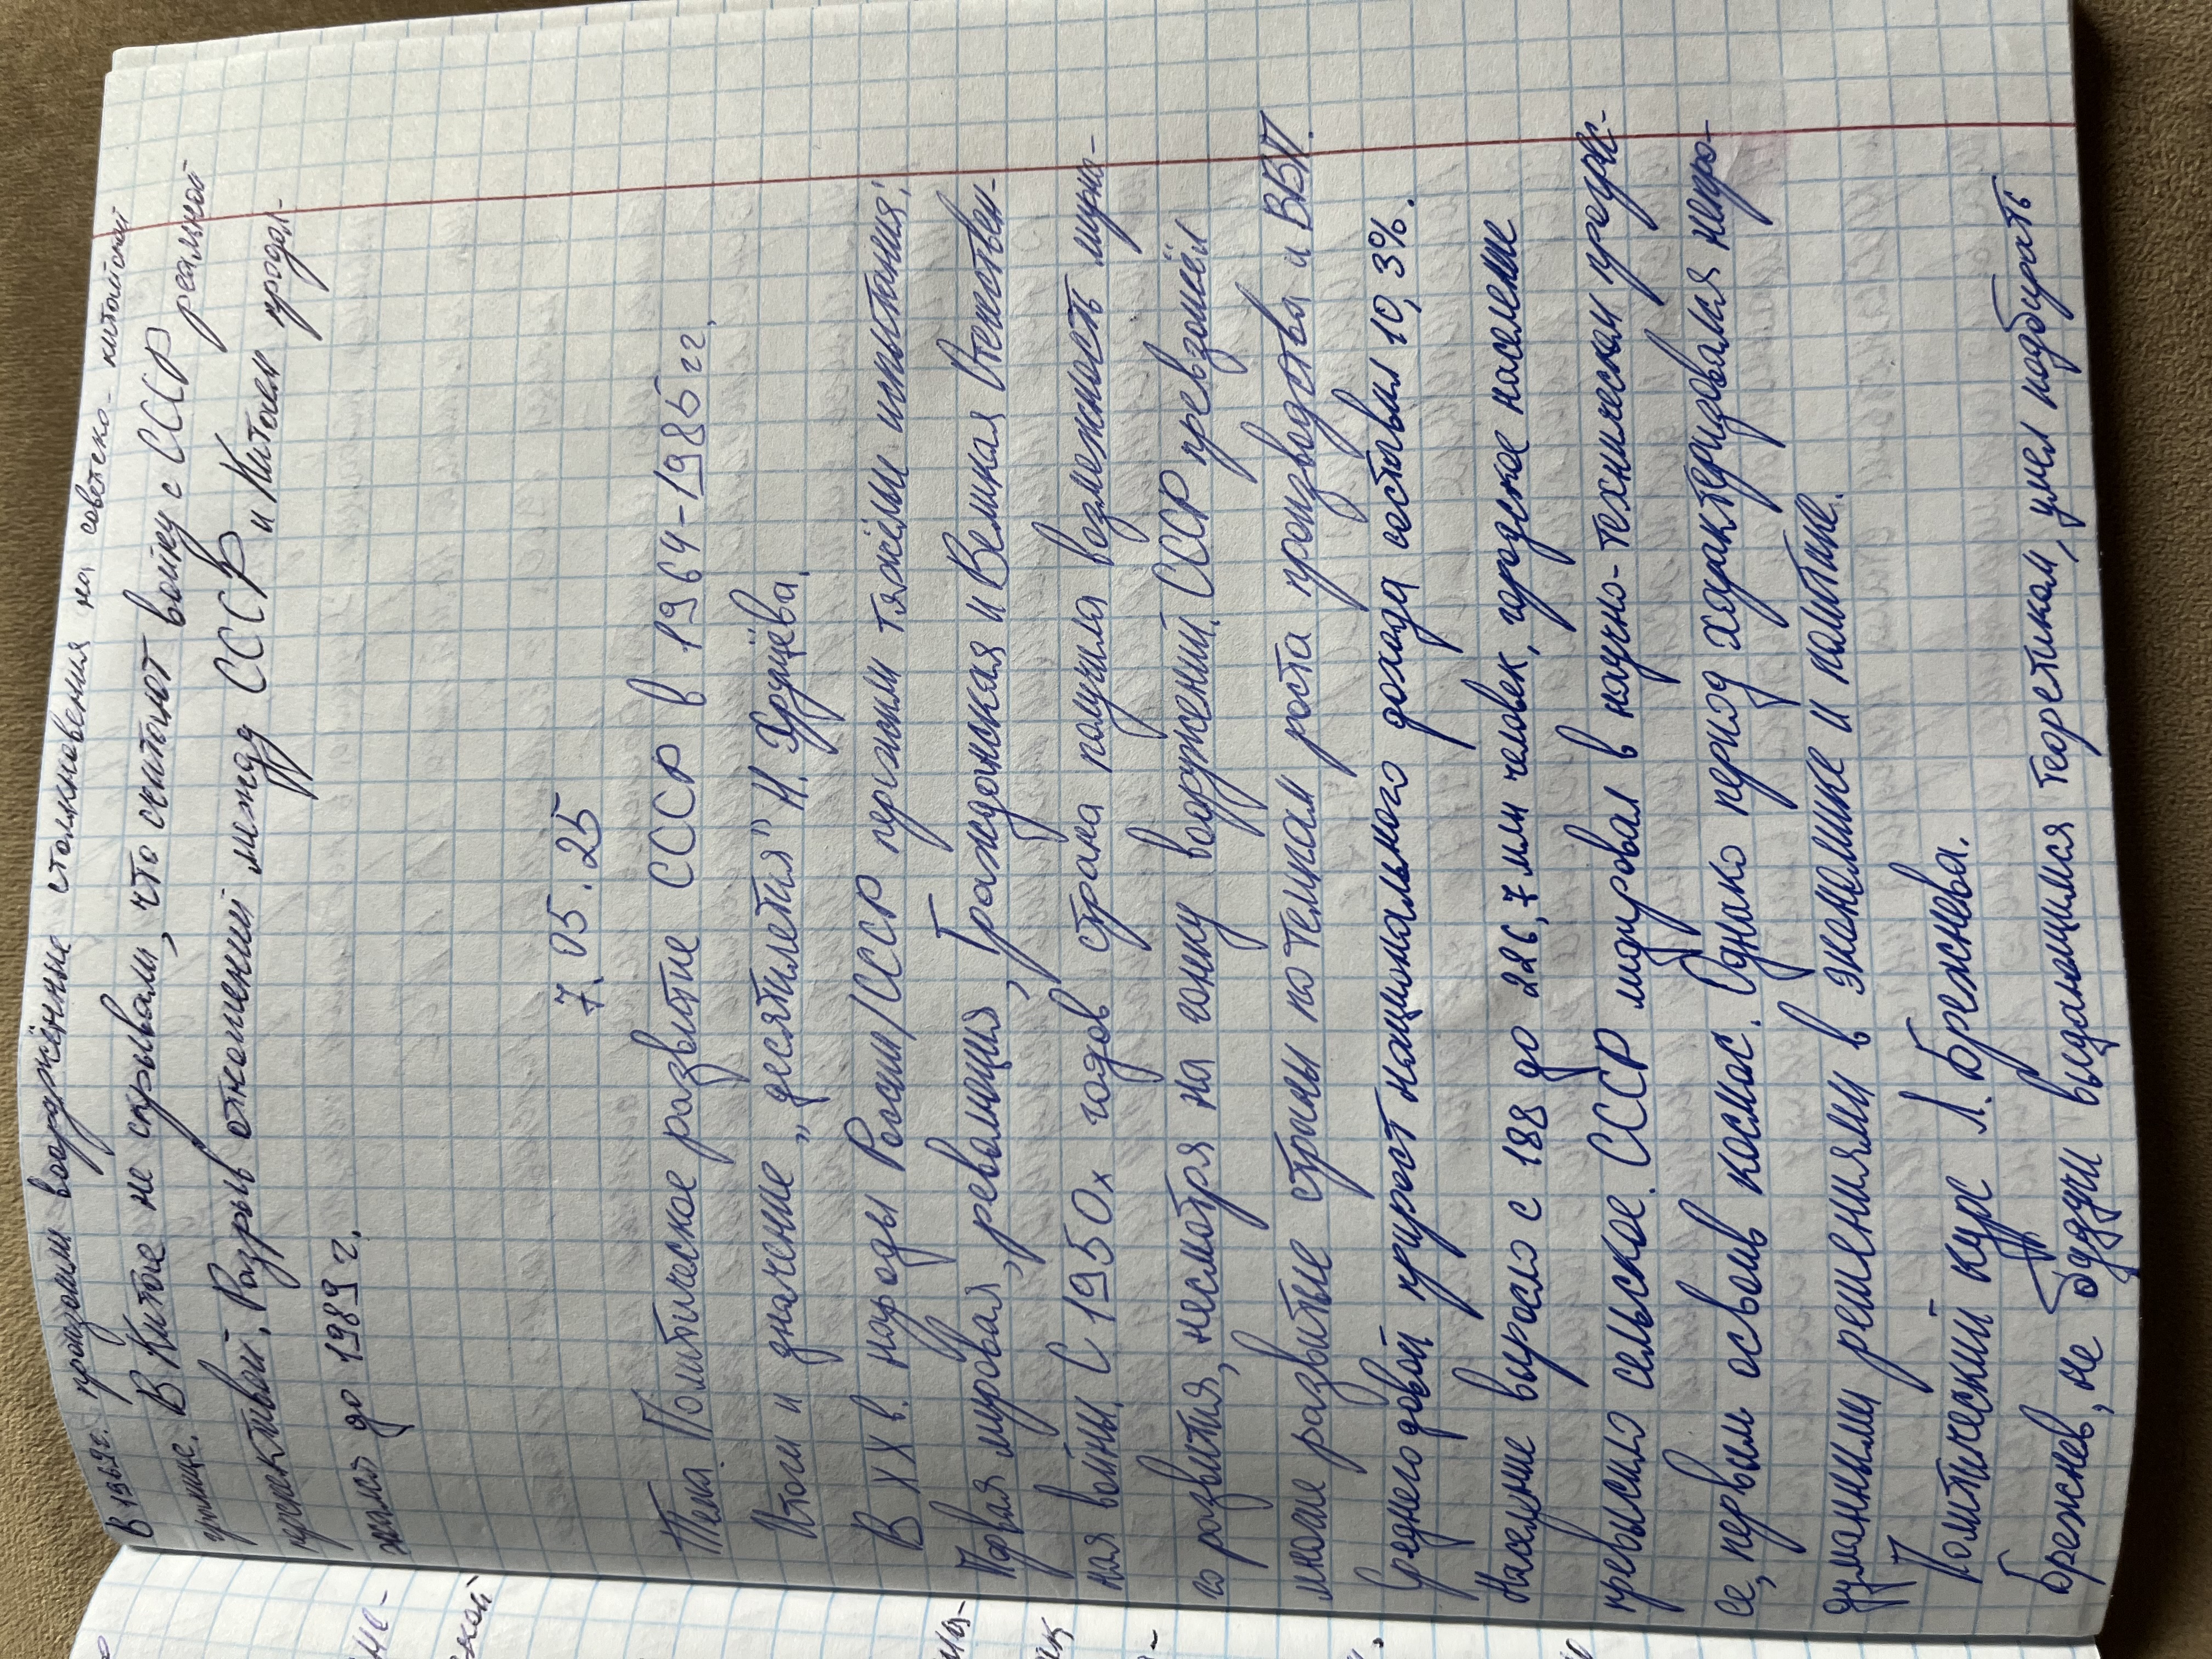 В 1969г. произошли вооружённые столкновения на советско-китайской
границе. В Китае не скрывали, что считают войну с СССР реальной
перспективой. Разрыв отношений между СССР и Китаем продол-
жался до 1989 г.
7.05.25
Тема: Политическое развитие СССР в 1964-1985 гг.
Итоги и значение „десятилетия" Н. Хрущёва.
В XX в. народы России/СССР пережили тяжёлые испытания;
Первая мировая, революция, Гражданская и Великая Отечествен-
ная войны. С 1950х годов страна получила возможность мирно-
го развития, несмотря на гонку вооружений. СССР превзошёл
многие развитые страны по темпам роста производства и ВВП.
Среднегодовой прирост национального дохода составил 10,3%.
Население выросло с 188 до 226,7 млн человек, городское население
превысило сельское. СССР лидировал в научно-техническом прогрес-
се, первым освоив космос. Однако период характеризовался непро-
думанными решениями в экономике и политике.
Политический курс Л. Брежнева.
Брежнев, не будучи выдающимся теоретиком, умел подбирать